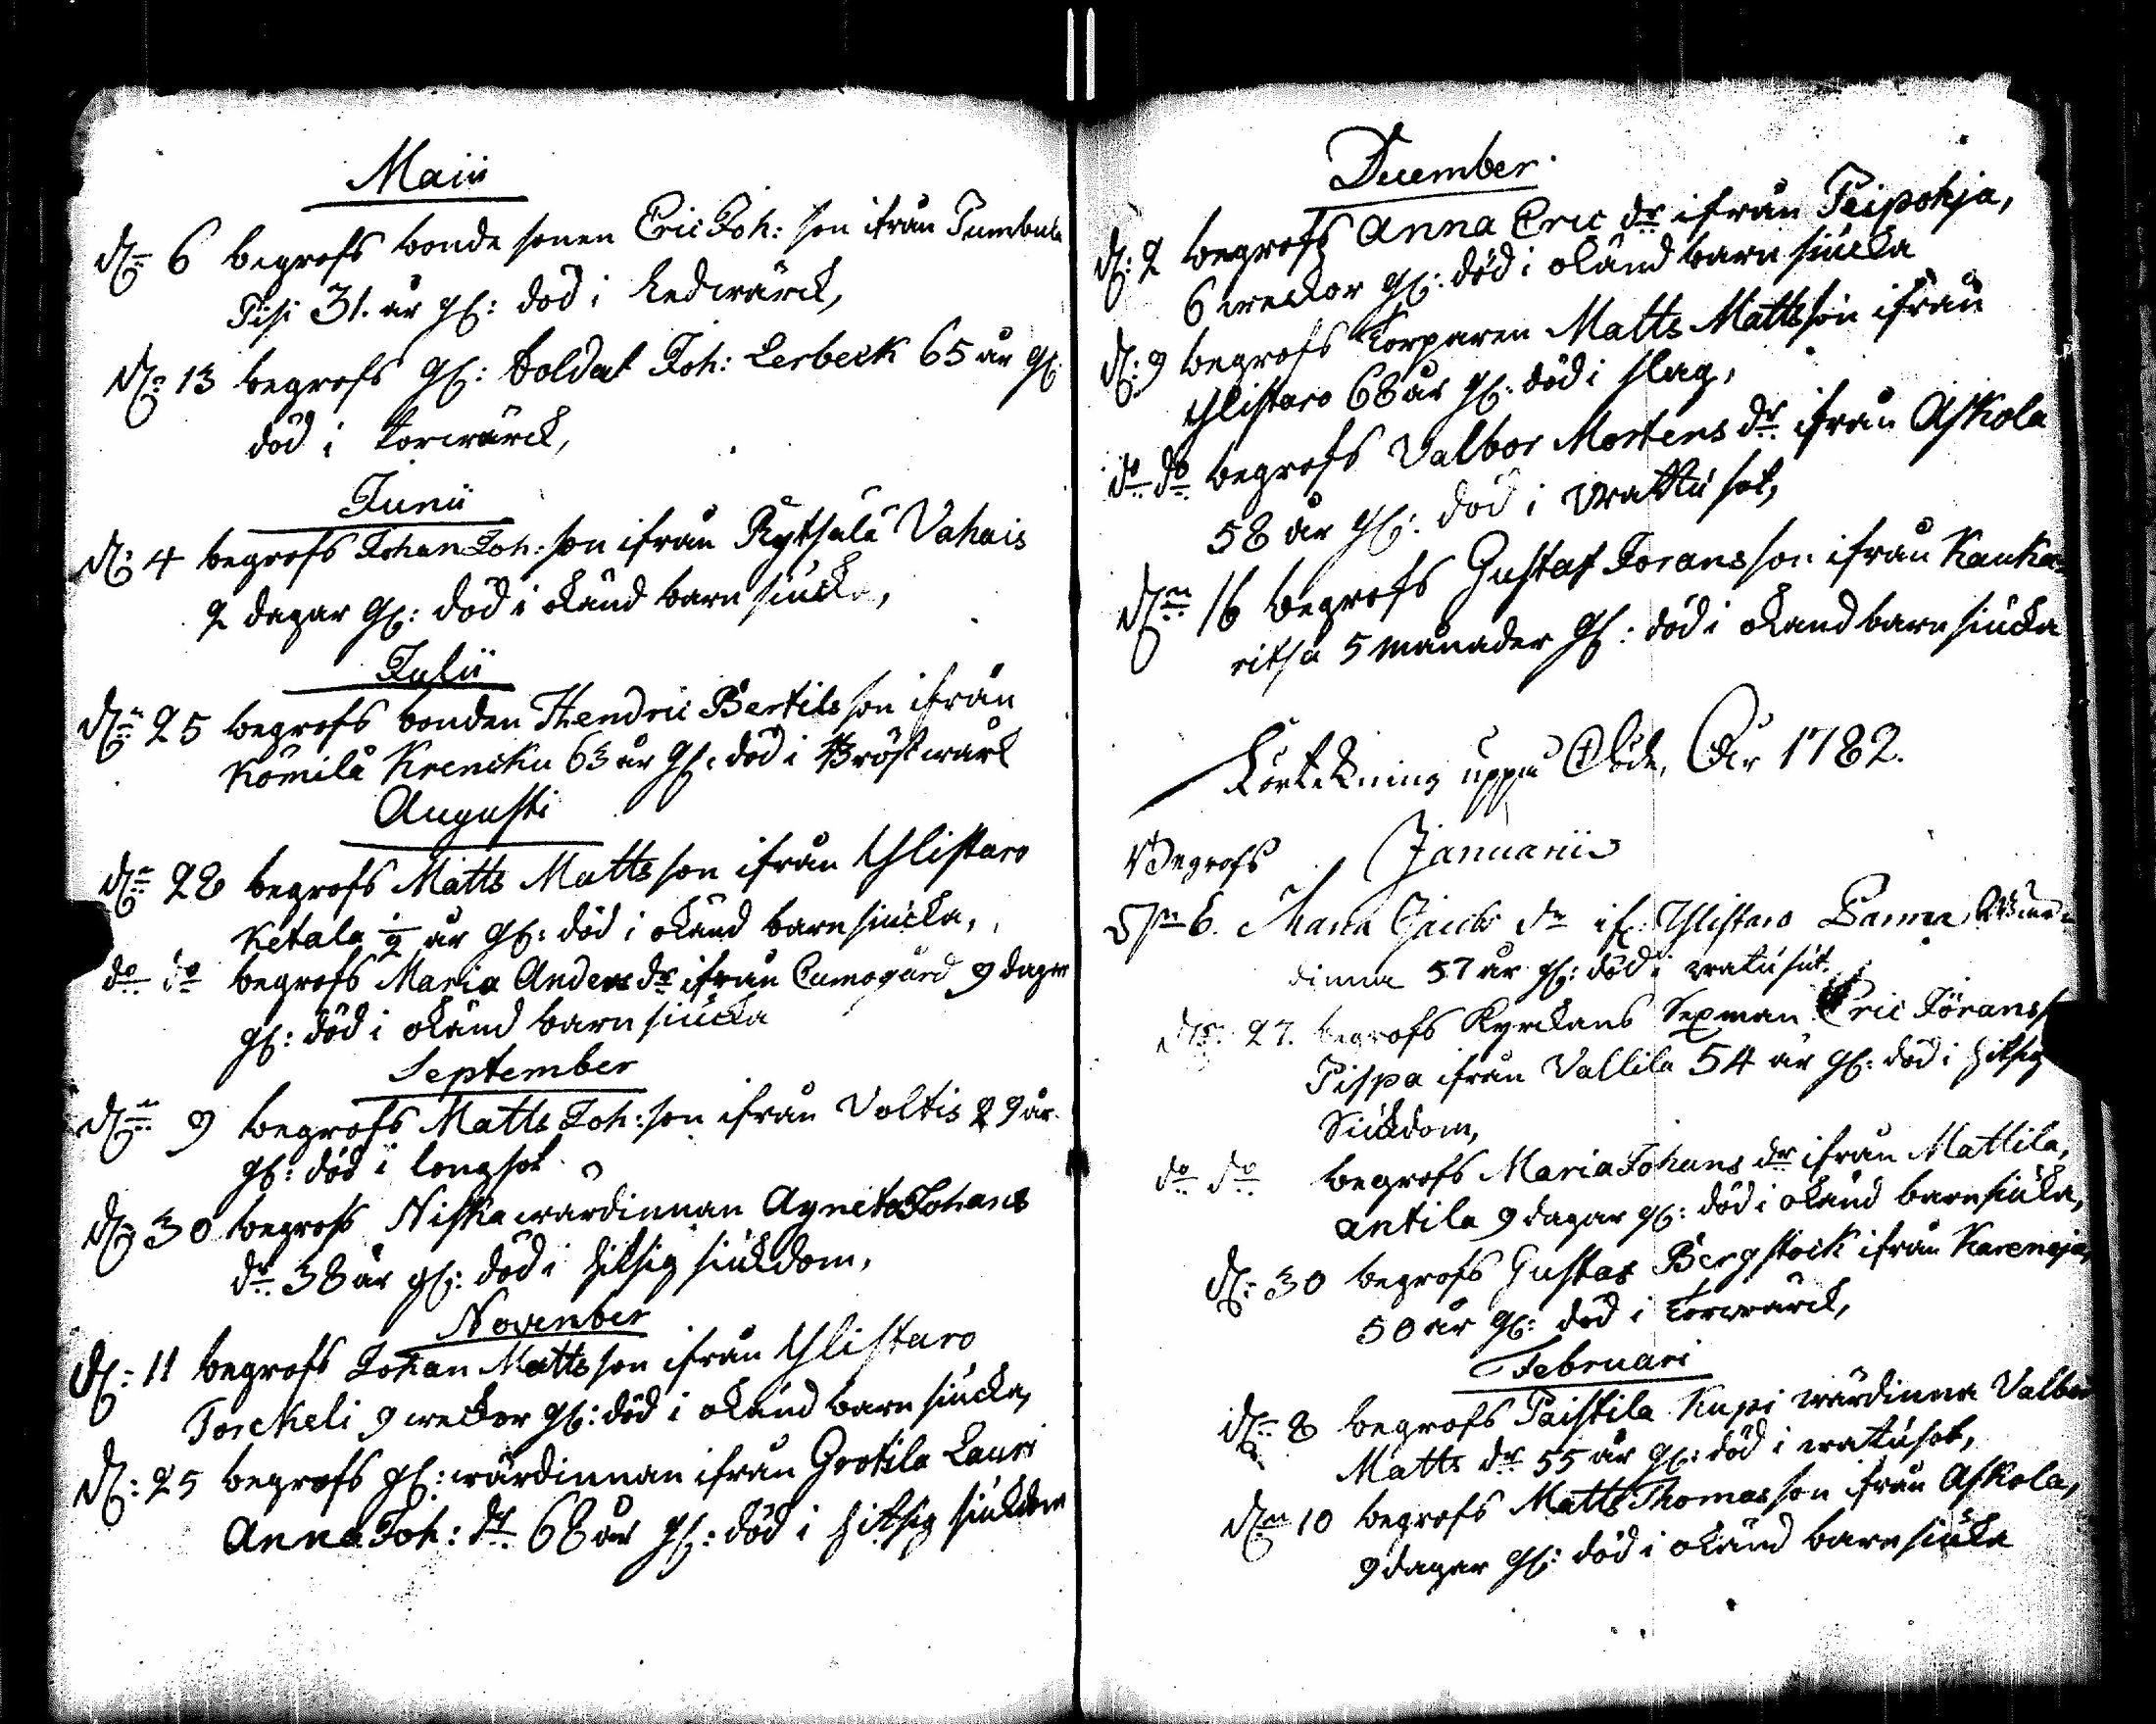 Maii
d:n 6 begrofs bonde sonen Eric Joh: son ifrån Pumbula
Sisi 31. år gl: död i Ledwärck,
d:n 13 begrofs gl: Soldat Joh: Lerbeck 65 år gl:
död i Torrwärck,
Junii
d: 4 begrofs Johan Joh: son ifrån Rytsälä Vahais
2 dagar gl: död i okänd barn siucka,
Julii
d:n 25 begrofs bonden Hendric Bertils son ifrån
Kömilä Krencku 63 år gl: död i Bröstwärk
Augusti
d:n 28 begrofs Matts Matts son ifrån Ylistaro
Ketala ½ år gl: död i okänd barn siucka,
do do begrofs Maria Anders dr ifrån Cumogård 9 dagar
gl: död i okänd barn siucka
September
d:n 9 begrofs Matts Joh: son ifrån Voltis 29 år
gl: död i longsot
d: 30 begrofs Niska wärdinnan Agneta Johans
dr 38 år gl: död i hitsig siuckdom,
November
d: 11 begrofs Johan Matts son ifrån Ylistaro
Torckeli 9 weckor gl: död i okänd barn siucka,
d: 25 begrofs gl: wärdinnan ifrån Grotila Lauri
Anna Joh: dr 68 år gl: död i hitsig siuckdom
December
d: 2 begrofs Anna Eric dr ifrån Peipohja,
6 weckor gl: död i okänd barn siucka
d: 9 begrofs Torparen Matts Mattsson ifrån
Ylistaro 68 år gl: död i slag,
do do begrofs Valbor Mortens dr ifrån Askola
58 år gl: död i wattu sot,
d:n 16 begrofs Gustaf Jorans son ifrån Kanka=
ritsa 5 månader gl: död i okand barn siucka
Förtekning uppå Döde, År 1782.
Begrofs Januarii
d:n 6. Maria Jacobs dr if: Ylistaro Wär=
dinna 57 år gl: död i watusot.
d:n 27. begrofs Kyrckans Sexman Eric Jörans
Pispa ifrån Vallila 54 år gl: död i hitsig
Siuckdom,
do do begrofs Maria Johans dr ifrån Mattila,
antila 9 dagar gl: död i okänd barn siucka,
d: 30 begrofs Gustaf Bergstock ifrån Kareneja,
50 år gl: död i Torrwärck,
Februari
d:n 8 begrofs Paistila Kupi wärdinna Valbor
Matts dr 55 år gl: död i watusot,
d:n 10 begrofs Matts Thomas son ifrån Askola,
9 dagar gl: död i okänd barn siucka